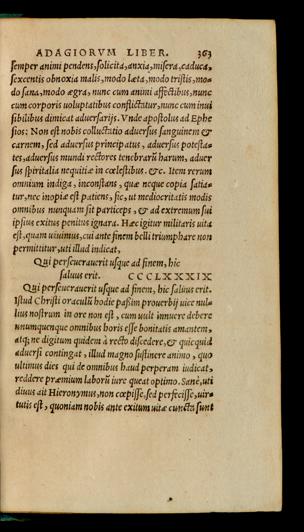 ADAGIORVM LIBER. 363
semper animi pendens, solicita, anxia, misera, caduca,
sexcentis obnoxia malis, modo læta, modo tristis, mo-
do sana, modo ægra, nunc cum animi affectibus, nunc
cum corporis uoluptatibus conflictatur, nunc cum inui
sibilibus dimicat aduersarijs. Vnde apostolus ad Ephe
sios: Non est nobis colluctatio aduersus sanguinem &
carnem, sed aduersus principatus, aduersus potesta-
tes, aduersus mundi rectores tenebrarũ harum, aduer
sus spiritalia nequitiæ in cœlestibus. &c. Item rerum
omnium indiga, inconstans, quæ neque copia satia-
tur, nec inopiæ est patiens, sic, ut mediocritatis modis
omnibus nunquam sit particeps, & ad extremum sui
ipsius exitus penitus ignara. Hæc igitur militaris uita
est, quam uiuimus, cui ante finem belli triumphare non
permittitur, uti illud indicat,
Qui perseuerauerit usque ad finem, hic
saluus erit. CCCLXXXIX
Qui perseuerauerit usque ad finem, hic saluus erit.
Istud Christi oraculũ hodie passim prouerbij uice nul-
lius nostrum in ore non est, cum uult innuere debere
unumquenque omnibus horis esse bonitatis amantem,
atq; ne digitum quidem à recto discedere, & quicquid
aduersi contingat, illud magno sustinere animo, quo
ultimus dies qui de omnibus haud perperam iudicat,
reddere præmium laborũ iure queat optimo. Sanè, uti
diuus ait Hieronymus, non cœpisse, sed perfecisse, uir-
tutis est, quoniam nobis ante exitum uitæ cuncta sunt